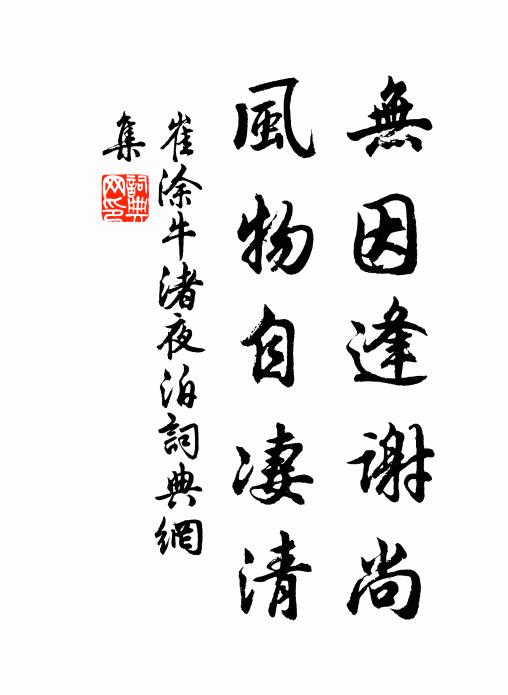 無因逢謝尚
風物自淒清
崔涂牛渚夜泊詞典網
集
詞典网印